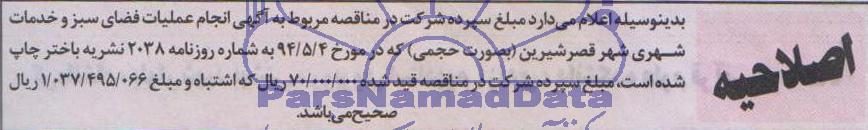 اصلاحیه
بدینوسیله اعلام می‌دارد مبلغ سپرده شرکت در مناقصه مربوط به آگهی انجام عملیات فضای سبز و خدمات
شهری شهر قصرشیرین (بصورت حجمی) که در مورخ ۹۴/۵/۴ به شماره روزنامه ۲۰۳۸ نشریه باختر چاپ
شده است، مبلغ سپرده شرکت در مناقصه قید شده ۷۰/۰۰۰/۰۰۰ ریال که اشتباه و مبلغ ۱/۰۳۷/۴۹۵/۰۶۶ ریال
صحیح می‌باشد.
ParsNamadData